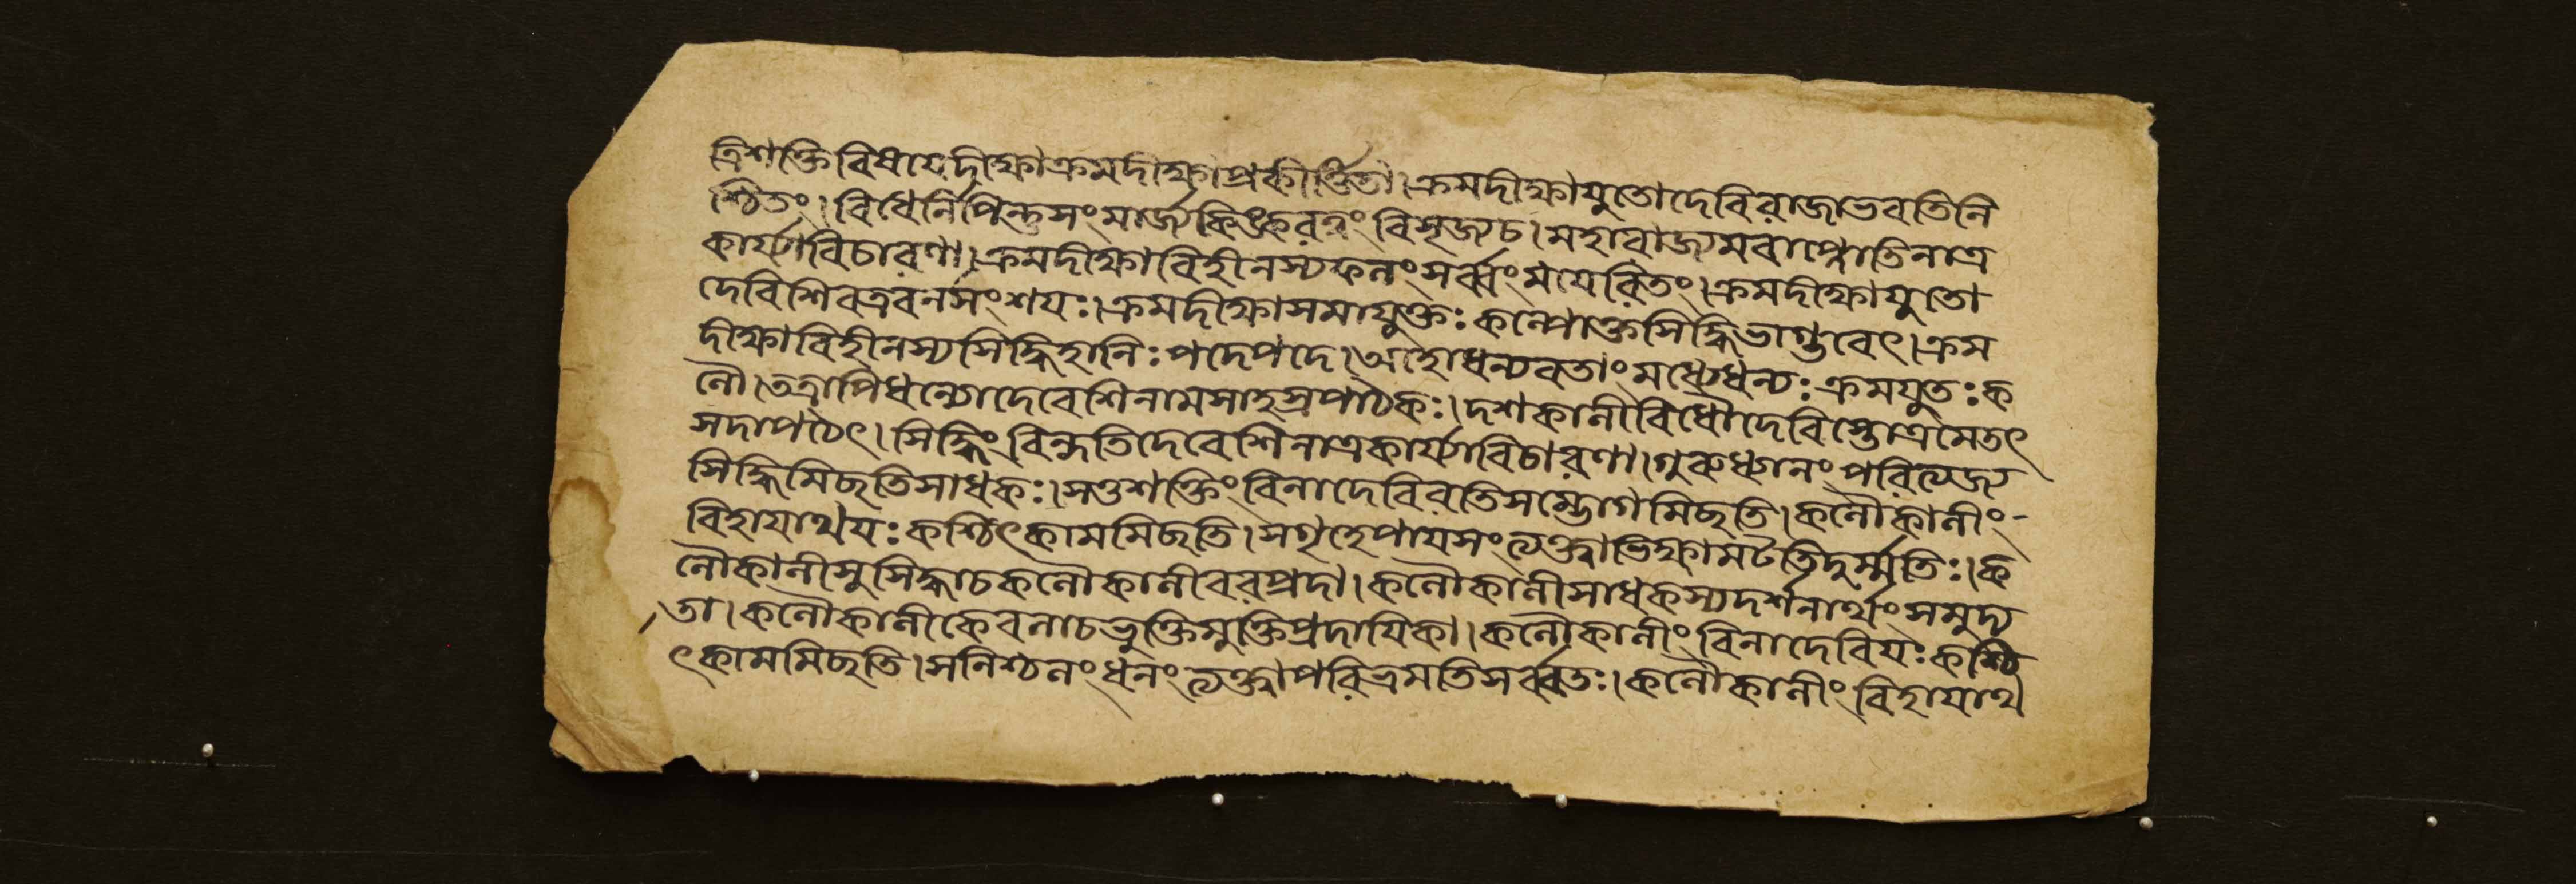 ত্রিশক্তিবিষয়েদীক্ষাক্রমদীক্ষাপ্রকীর্ত্তিতা।ক্রমদীক্ষাযুতোদেবিরাজাভবতিনি
শ্চিতং।বিধের্লিপিন্তুসংমার্জ্যকিঙ্করত্বংবিসৃজ্যচ।মহারাজ্যমবাপ্নোতিনাত্র
কার্য্যাবিচারণা।ক্রমদীক্ষাবিহীনস্যফলংসর্ব্বংময়েরিতং।ক্রমদীক্ষাযুতো
দেবিশিবএবনসংশয়ঃ।ক্রমদীক্ষাসমাযুক্তঃকল্পোক্তসিদ্ধিভাগ্ভবেৎ।ক্রম
দীক্ষাবিহীনস্যসিদ্ধিহানিঃপদেপদে।অহোধন্যবতাংমধ্যেধন্যঃক্রমযুতঃক
লৌ।তত্রাপিধন্যোদেবেশিনামসাহস্রপাঠকঃ।দশকালীবিধৌদেবিস্তোত্রমেতৎ
সদাপঠেৎ।সিদ্ধিংবিন্দতিদেবেশিনাত্রকার্য্যাবিচারণা।গুরুধ্যানংপরিত্যজ্য
সিদ্ধিমিছতিসাধকঃ।সতুশক্তিংবিনাদেবিরতিসম্ভোগমিছতি।কলৌকালীং-
বিহায়াথয়ঃকশ্চিৎকামমিছতি।সগৃহেপায়সংত্যক্ত্বাভিক্ষামটতিদুর্ম্মতিঃ।ক
লৌকালীসুসিদ্ধাচকলৌকালীবরপ্রদা।কলৌকালীসাধকস্যদর্শনার্থংসমুদ্য
তা।কলৌকালীকেবলাচভুক্তিমুক্তিপ্রদায়িকা।কলৌকালীংবিনাদেবিয়ঃকশ্চি
ৎকামমিছতি।সনিশ্চলংধনংত্যক্ত্বাপরিভ্রমতিসর্ব্বতঃ।কলৌকালীংবিহায়াথ